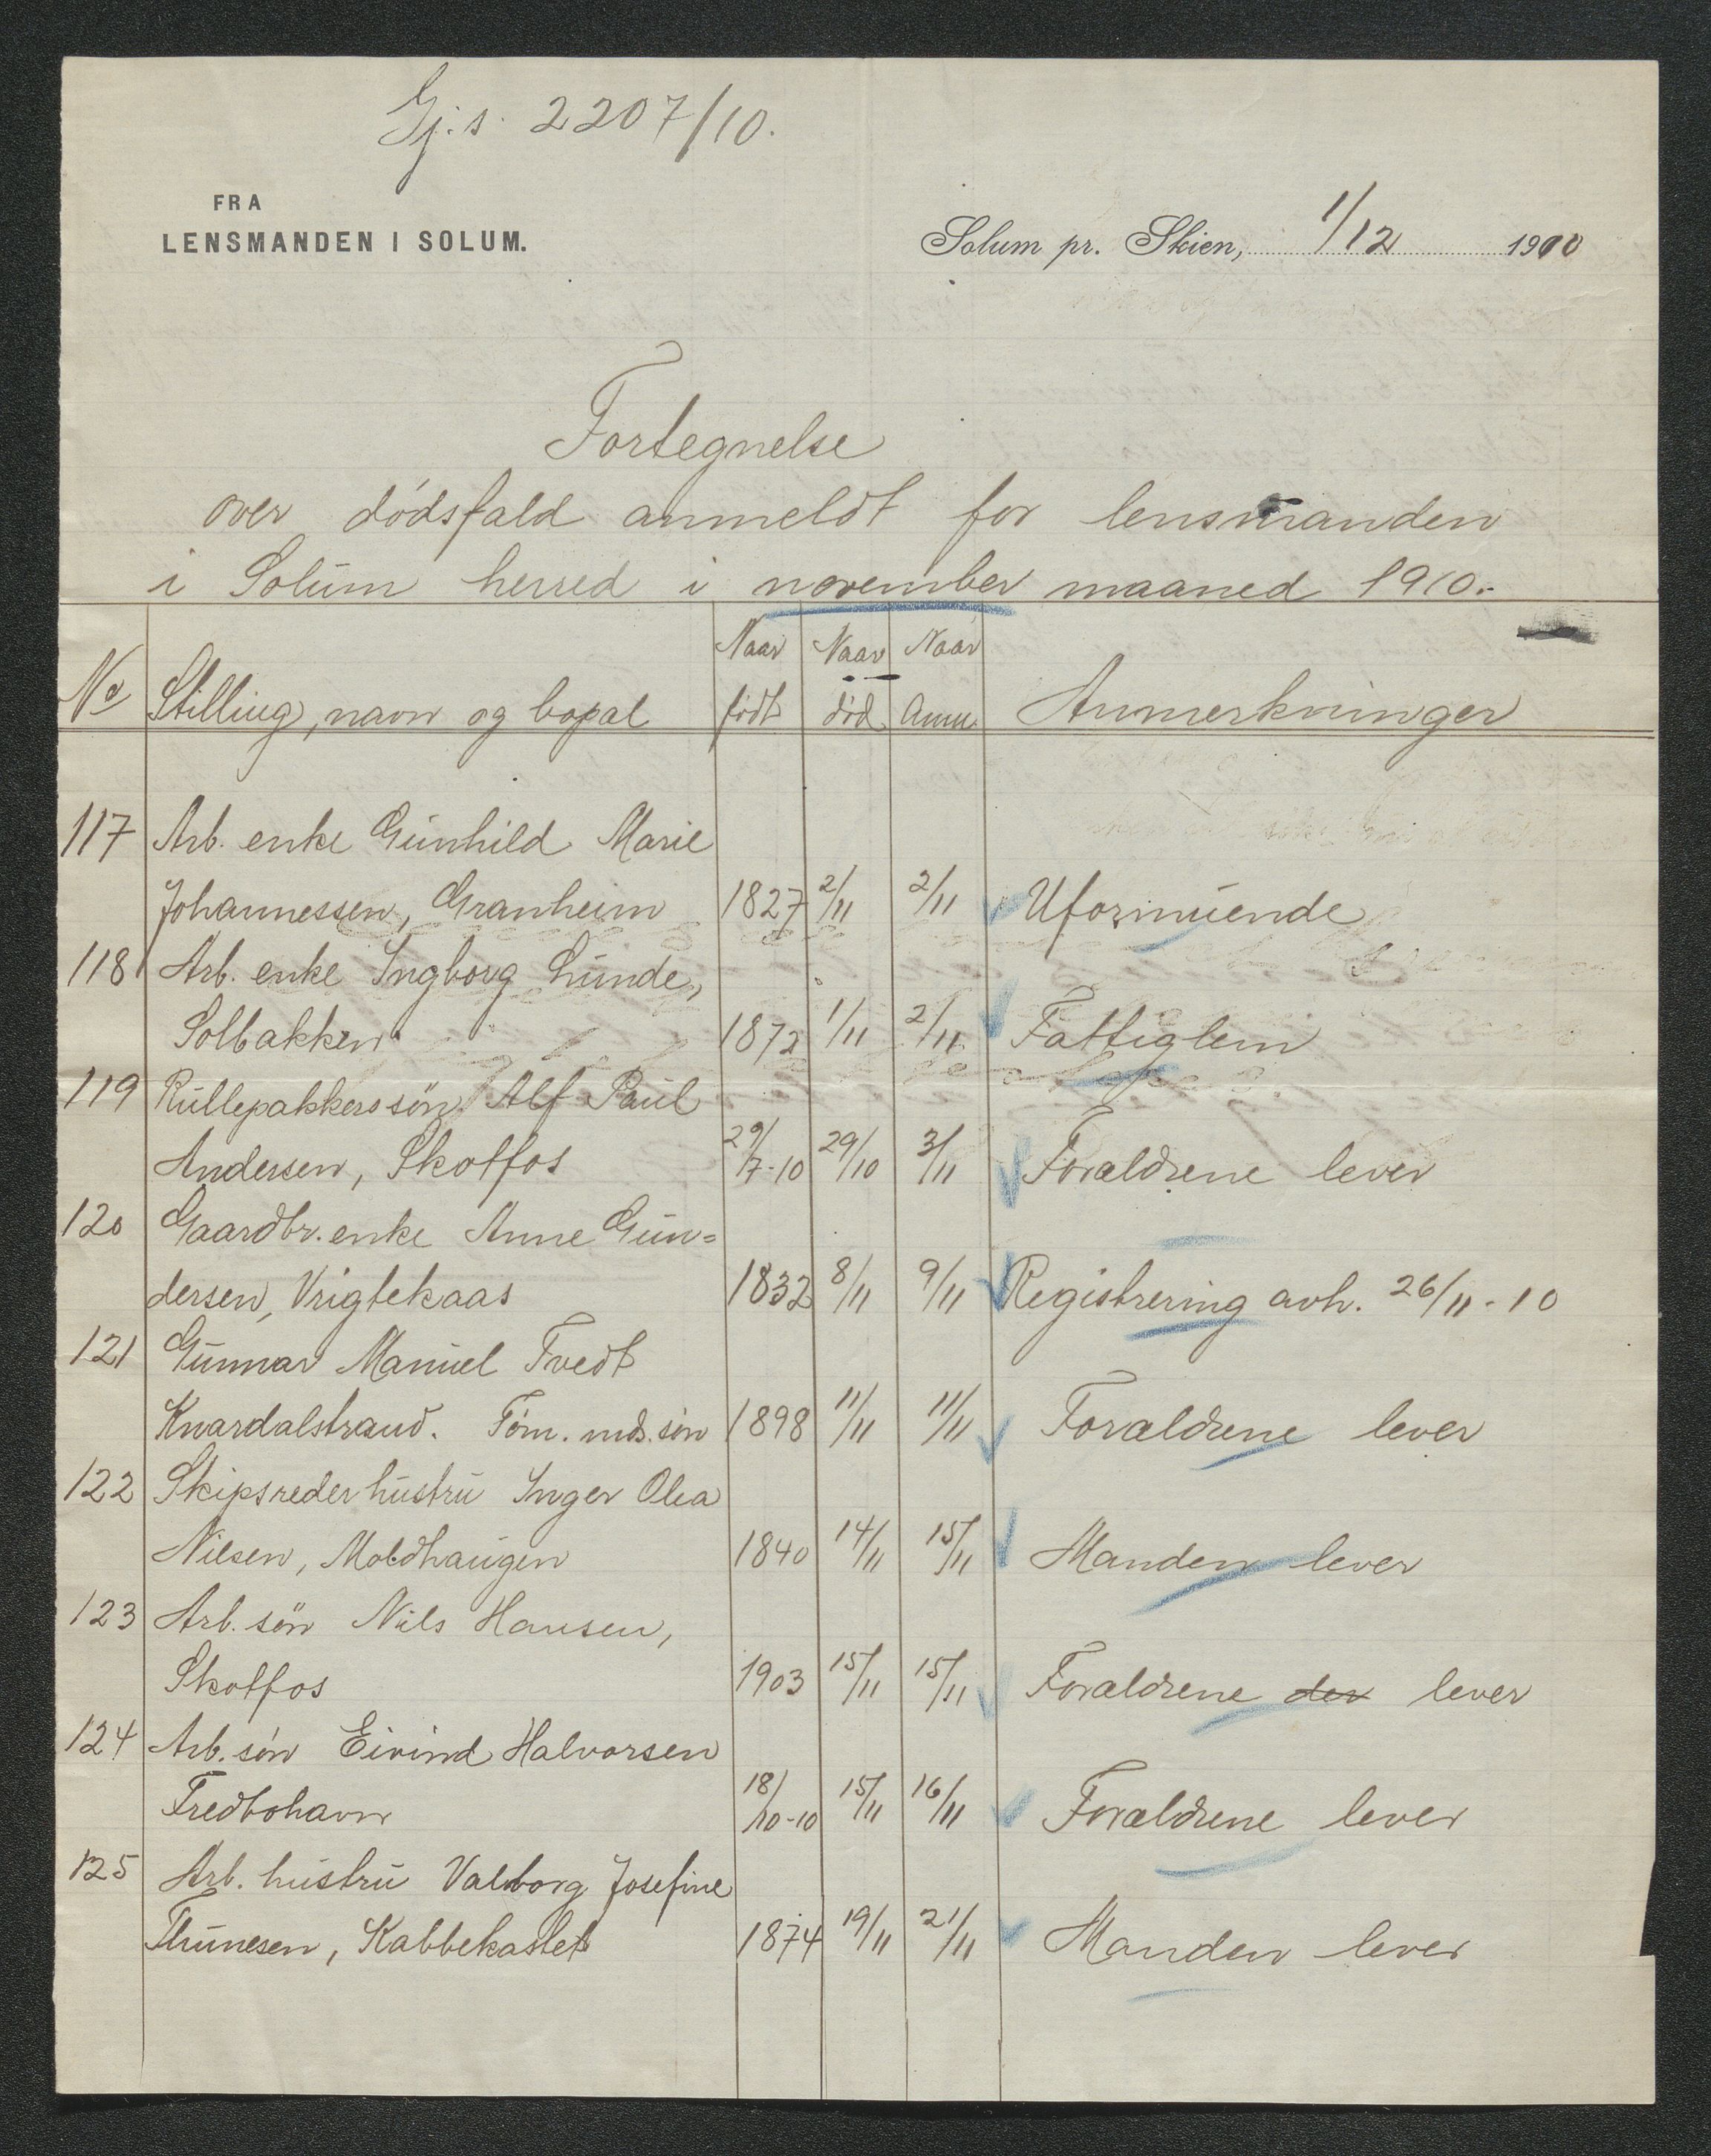 Gj.s. 2207/10.
FRA
LENSMANDEN I SOLUM.
Solum pr. Skien, 1/12 1910
Fortegnelse
over dødsfald anmeldt for lensmanden
i Solum herred i november maaned 1910.-
No Stilling, navn og bopal Naar født Naar død Naar Anm. Anmerkninger
117 Arb. enke Gunhild Marie
Johannessen, Granheim 1827 2/11 2/11 Uformuende
118 Arb. enke Ingborg Lunde,
Solbakken 1872 1/11 2/11 Fattiglem
119 Rullepakkers søn Alf Paul
Andersen, Skotfos 29/7-10 29/10 3/11 Forældrene lever
120 Gaardbr. enke Anne Gun=
dersen, Vrigtekaas 1832 8/11 9/11 Registrering avh. 26/11-10
121 Gunnar Manuel Tvedt
Knardalstrand. Tøm. mds. søn 1898 11/11 11/11 Forældrene lever
122 Skipsreder hustru Inger Olea
Nilsen, Moldhaugen 1840 14/11 15/11 Manden lever
123 Arb. søn Nils Hansen,
Skotfos 1903 15/11 15/11 Forældrene der lever
124 Arb. søn Eivind Halvorsen
Fredbohavn 18/10-10 15/11 16/11 Forældrene lever
125 Arb. hustru Valborg Josefine
Thunesen, Kabbekastet 1874 19/11 21/11 Manden lever